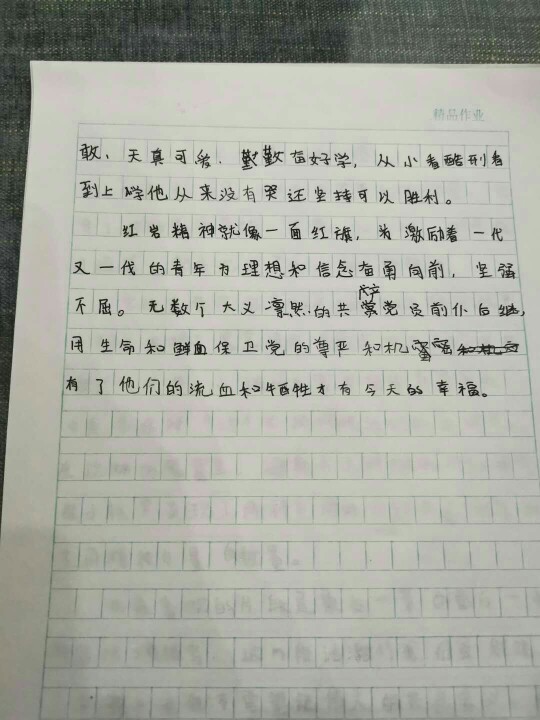 精品作业
敢、天真可爱、勤奋好学，从小看酷刑看
到上学他从来没有哭还坚持可以胜利。
红岩精神就像一面红旗，为激励着一代
又一代的青年为理想和信念奋勇向前，坚强
不屈。无数个大义凛然的共产党员前仆后继，
用生命和鲜血保卫党的尊严和机密
有了他们的流血和牺牲才有今天的幸福。